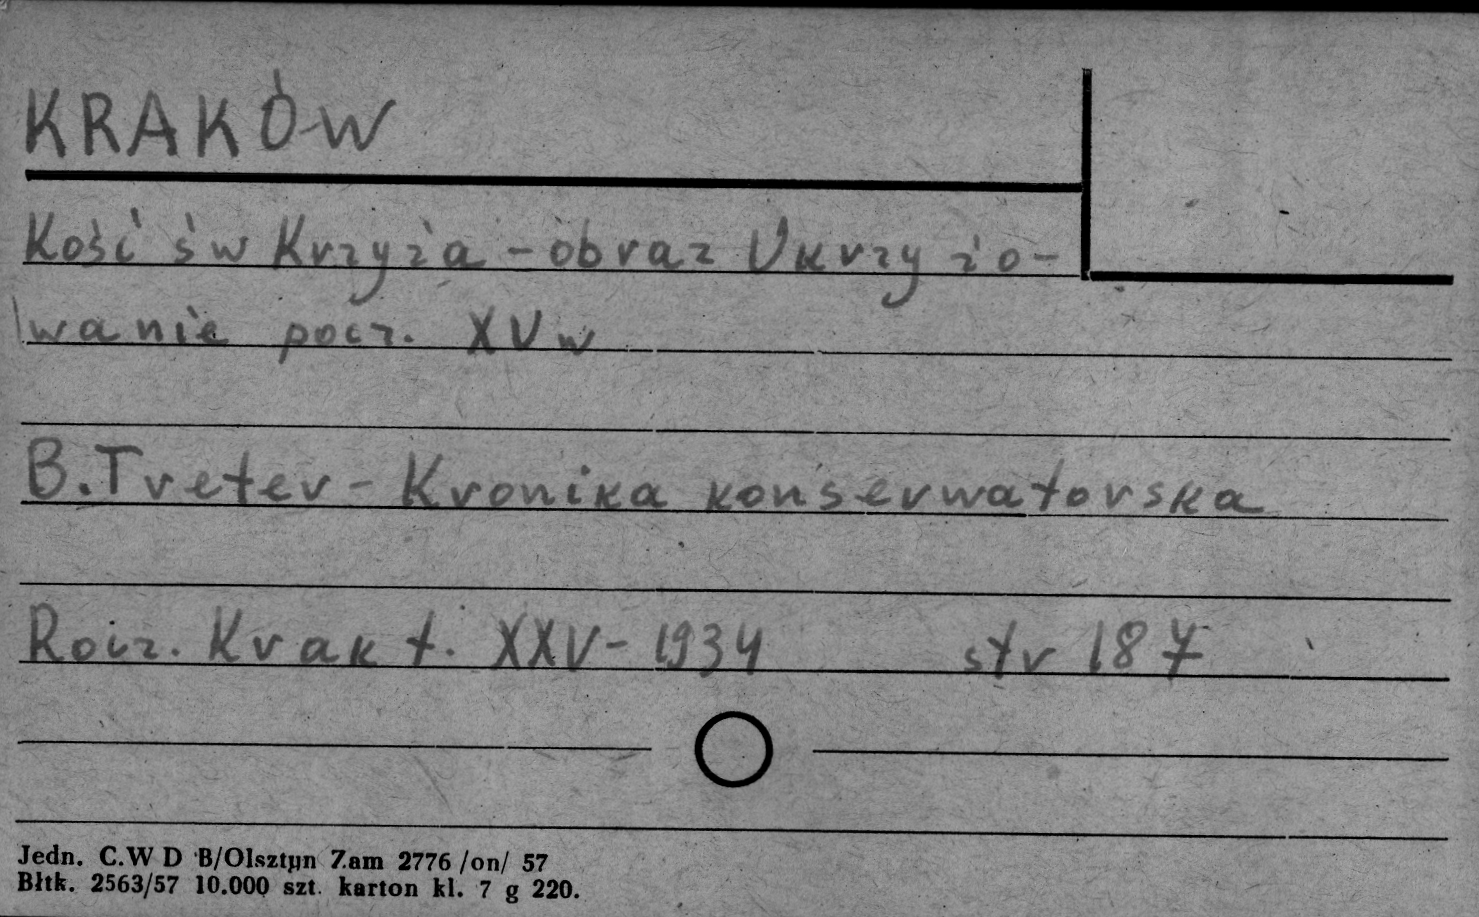 KRAKÓW
Kość św Krzyża - obraz Ukrzyżo-
wanie pocz. XV w
B. Treter - Kronika konserwatorska
Rocz. Krak t. XXV - 1934 str 187
Jedn. C.W D B/Olsztyn Zam 2776 /on/ 57
Błtk. 2563/57 10.000 szt. karton kl. 7 g 220.